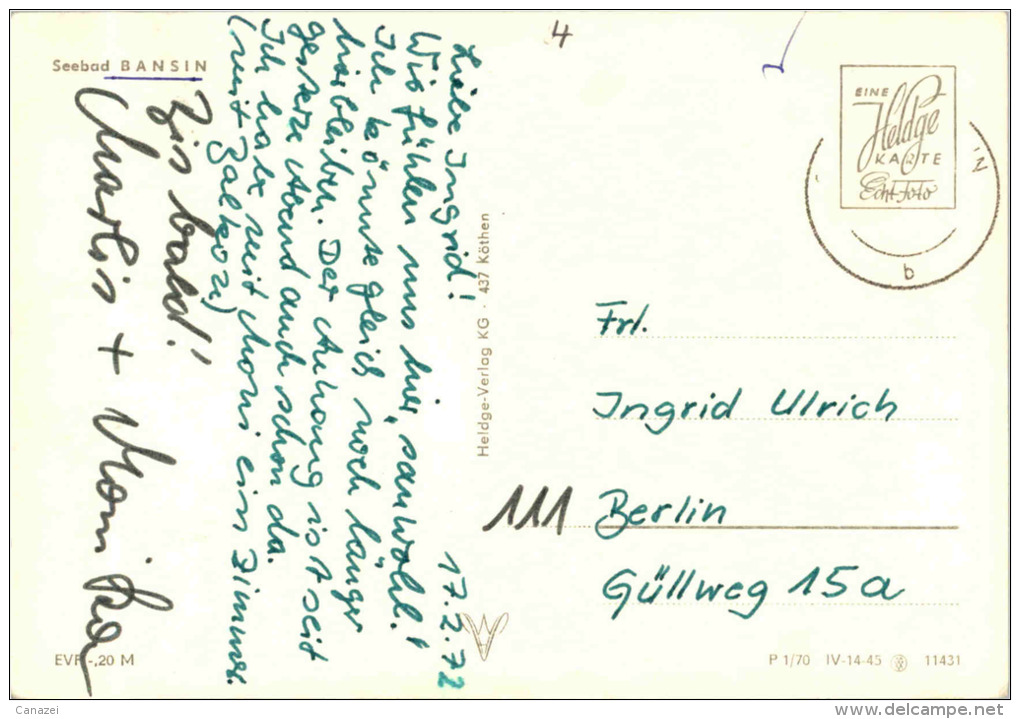 4
Seebad BANSIN
EINE
Heldge
KARTE
Echt Foto
N
b
17.2.72
Liebe Ingrid!
Wir fühlen uns hier "sauwohl"!
Ich könnte gleich noch länger
hierbleiben. Der Anhang ist seit
gestern Abend auch schon da.
Ich habe mit Moni ein Zimmer.
(mit Balkon)
Bis bald!
Marlis + Monika
Heldge-Verlag KG · 437 Köthen
Frl.
Ingrid Ulrich
111 Berlin
Güllweg 15a
EVP -,20 M
P 1/70 IV-14-45 11431
Canazei
www.delcampe.net